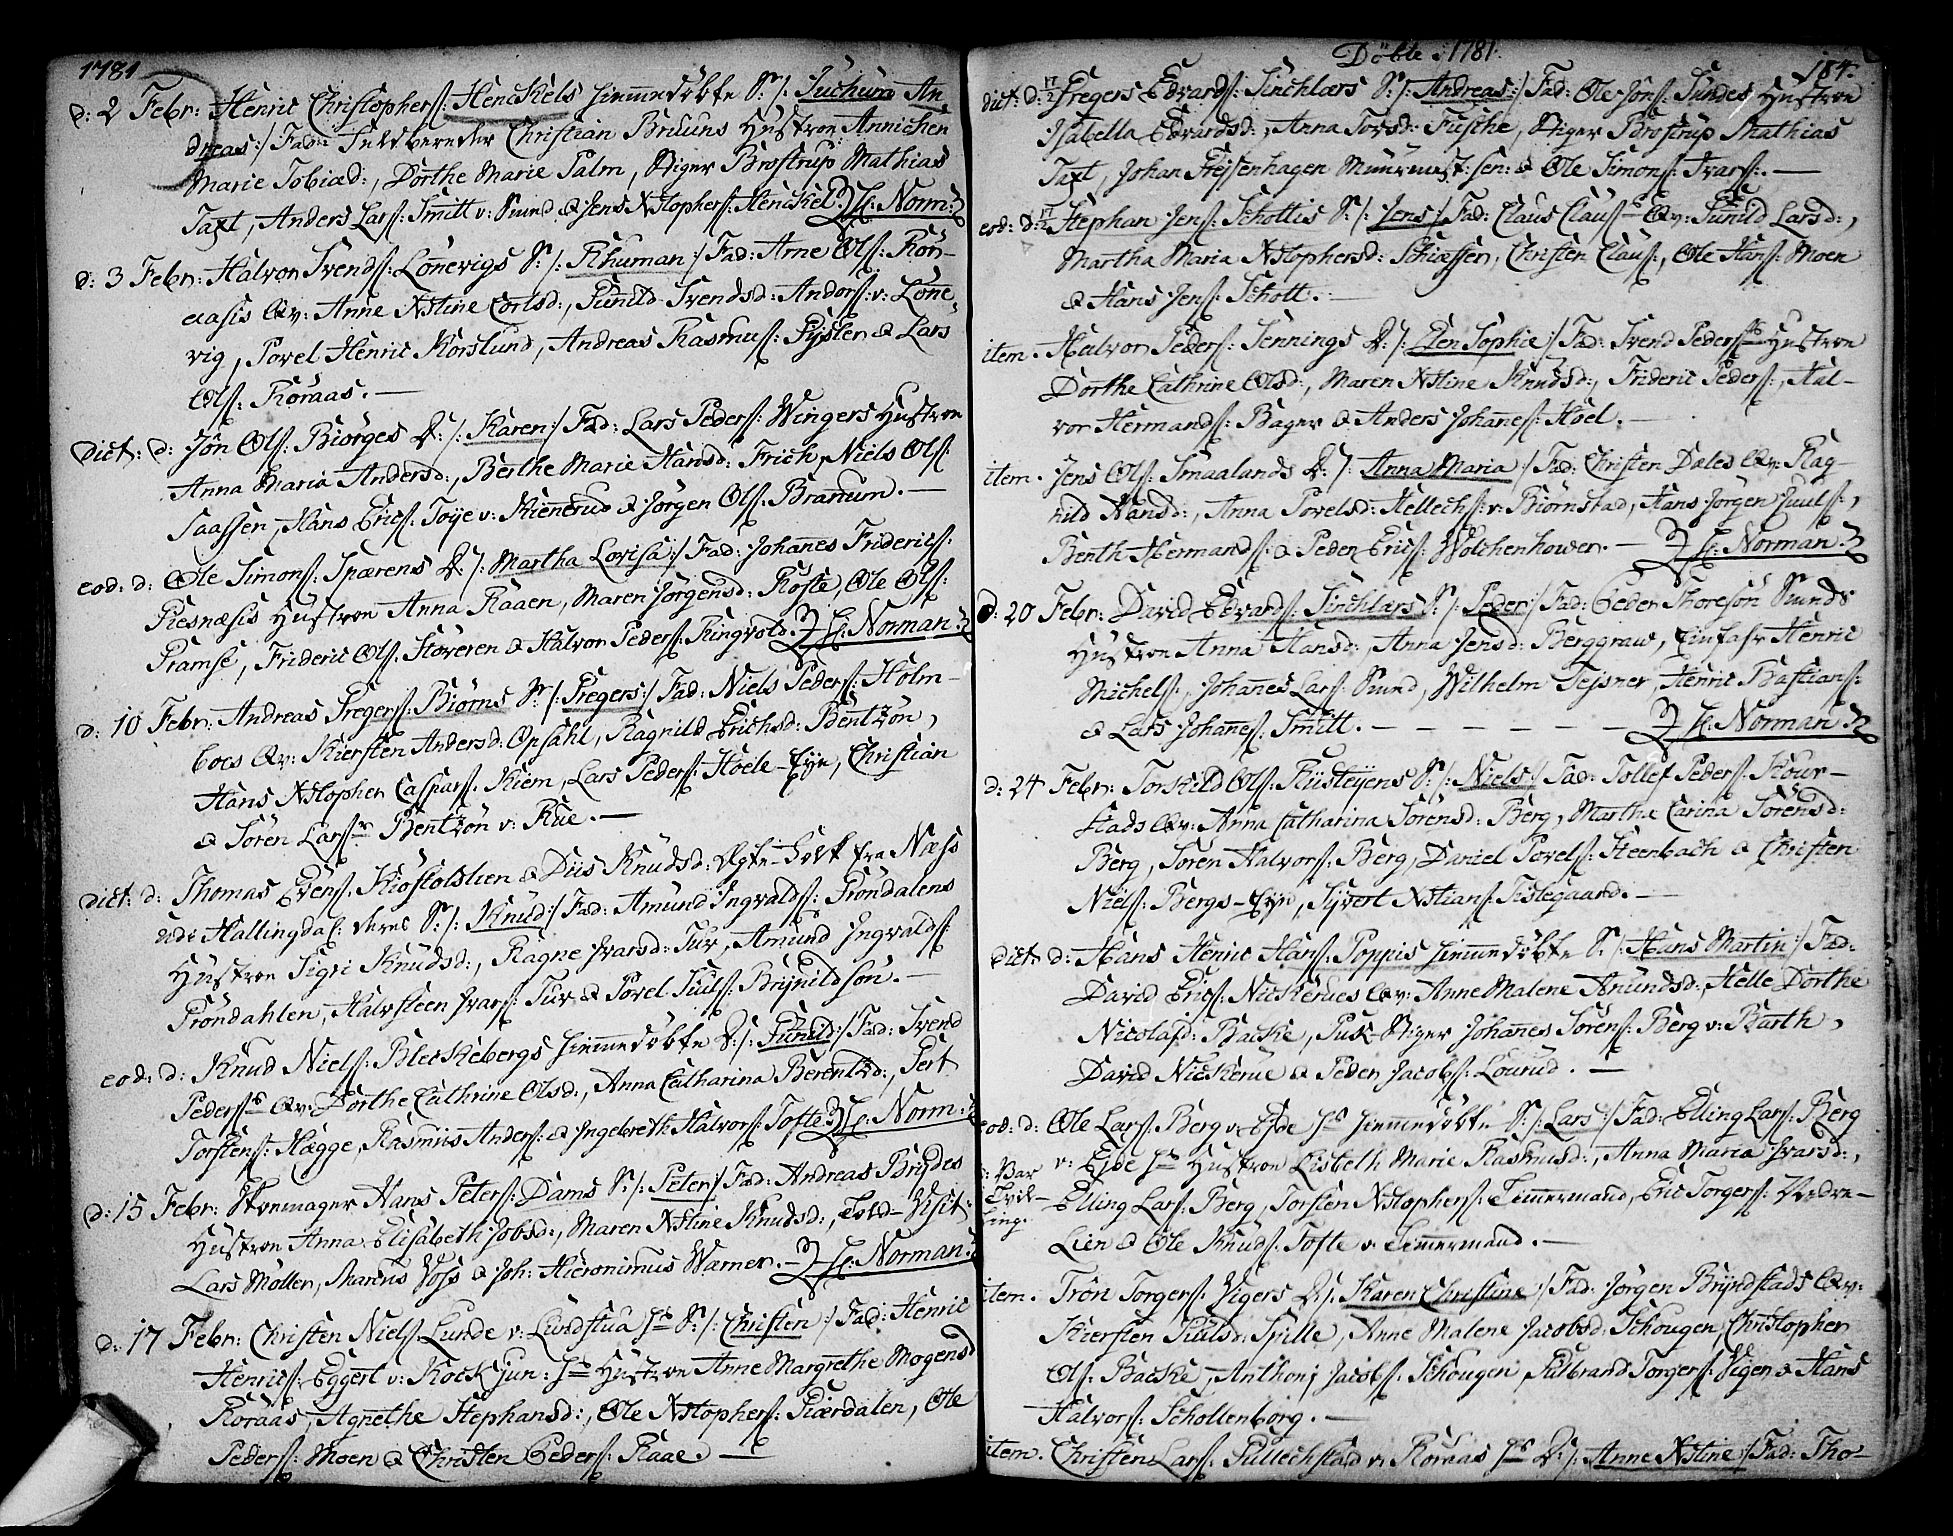 1781
d: 2 Febr: Henric Christophers: Henckels hiemmedöbte S: /: Juchum An
dreas :/ Fad: Feldbereder Christian Bruuns Hustroe Annichen
Marie Tobiæd:, Dorthe Marie Palm, Stiger Brostrup Mathias
Taxt, Anders Lars: Smitt v: Smed & Jens Xstophers: Henckel. H: Norm:
d: 3 Febr: Halvor Svends: Lönevigs S: /: Rhuman :/ Fad: Arne Ols: Rör-
aasis Qv: Anne Xstine Corlsd:, Gunild Svendsd: Andors: v: Löne-
vig, Povel Henric Korslund, Andreas Rasmus: Gisler & Lars
Ols: Röraas. —
Dict: d: Jön Ols: Biörges D: /: Karen :/ Fad: Lars Peders: Wingers Hustroe
Anna Maria Andersd:, Berthe Marie Hansd: Frich, Niels Ols:
Saassen, Hans Erics: Toye v: Kienerud & Jörgen Ols: Branum. —
eod: d: Ole Simons: Spærens D: /: Martha Lovisa :/ Fad: Johannes Friderics:
Resnæsis Hustroe Anna Raaen, Maren Jörgensd: Röste, Ole Ols:
Pramse, Frideric Ols: Höveren & Halvor Peders: Ringvold. H: Norman
d: 10 Febr: Andreas Gregers: Biörns S: /: Gregers :/ Fad: Niels Peders: Holm-
boes Qv: Kiersten Andersd: Opsahl, Ragnild Erichsd: Bentzön,
Hans Xstopher Caspars: Kiem, Lars Peders: Hoele-Eye, Christian
& Sören Lars: Bentzön v: Rüe. —
Dict: d: Thomas Evens: Kiöstolslien & Diis Knudsd: Ægte-Folk fra Næss
udi Hallingdal: deres S: /: Knud :/ Fad: Amund Ingvalds: Pröndalens
Hustroe Sigri Knudsd:, Ragne Ivarsd: Tuv, Amund Ingvalds:
Pröndahlen, Halvsteen Ivars: Tuv & Povel Juuls: Brynildsön. —
eod: d: Knud Niels: Bleskebergs hiemmedöbte D: /: Gunild :/ Fad: Svend
Peders: Qv: Dorthe Cathrine Olsd:, Anna Catharina Berentzd:, Gert
Torstens: Hagge, Rasmus Anders: & Ingebreth Halvors: Tofte. H: Norm:
d: 15 Febr: Skoemager Hans Peters: Dams S: /: Peter :/ Fad: Andreas Brydes
Hustroe Anna Elisabeth Jobsd:, Maren Xstine Knudsd:, Told-Visit:
Lars Möller, Marcus Voss & Joh: Hieronimus Warner. — H: Norman
d: 17 Febr: Christen Niels: Lunde v: Lundstua S: /: Christen :/ Fad: Henric
Henrics: Eggert v: Kock jun: Hustroe Anne Margrethe Mogensd
Roraas, Agnethe Stephansd:, Ole Xstophers: Giærdalen, Ole
Peders: Moen & Christen Peders: Raae. —
Döbte 1781. 184.
dict: d: 17/2 Gregers Edvards: Sinchlærs S: /: Andreas :/ Fad: Ole Jöns: Sundes Hustroe
Isabella Edvardsd:, Anna Torsd: Fusche, Stiger Brostrup Mathias
Taxt, Johan Heysenhagen Muurmest: sen: & Ole Simons: Ivars:. —
eod: d: 17/2 Stephan Jens: Schottis S: /: Jens :/ Fad: Claus Claus: Qv: Gunild Larsd:,
Martha Maria Xstophersd: Schiæffer, Christen Claus:, Ole Hans: Moen
& Hans Jens: Schott. —
item. Halvor Peders: Jennings D: /: Elen Sophie :/ Fad: Svend Peders: Hustroe
Dorthe Cathrine Olsd:, Maren Xstine Knudsd:, Frideric Peders:, Hal-
vor Hermands: Bager & Anders Johannes: Hoel. —
item. Jens Ols: Smaalands D: /: Anna Maria :/ Fad: Christen Dales Qv: Rag-
nild Hansd:, Anna Povelsd: Hellechs: v: Biörnstad, Hans Jörgen Juuls:,
Benth Hermands: & Peder Erics: Wolchenhower. — H: Norman
d: 20 Febr: David Edvards: Sinchlærs S: /: Peder :/ Fad: Peder Thoresön Smeds
Hustroe Anna Hansd:, Anna Jensd: Berggraw, Einfahr Henric
Michels:, Johanes Lars: Smed, Wilhelm Tessner, Henric Bastians:
& Lars Johannes: Smitt. — — — — — H: Norman
d: 24 Febr: Torskild Ols: Rusteyens S: /: Niels :/ Fad: Tollef Peders: Kour-
stads Qv: Anna Catharina Sörensd: Berg, Marthe Carina Sörensd:
Berg, Sören Halvors: Berg, Daniel Povels: Steenbach & Christen
Niels: Bergs-Eye, Syvert Xstians: Tislegaard. —
Dict: d: Hans Henric Hans: Poppis hiemmedöbte S: /: Hans Martin :/ Fad:
David Erics: Nickerues Qv: Anne Malene Amundsd:, Helle Dorthe
Nicolajd: Backe, Puk-Stiger Johannes Sörens: Berg v: Barth,
David Nickerue & Peder Jacobs: Lourud. —
eod: d: Ole Lars: Berg v: Eyde hiemmedöbte S: /: Lars :/ Fad: Elling Lars: Berg
v: Eyde Hustroe Lisbeth Marie Rasmusd:, Anna Maria Ivarsd:,
: Var
Tvil-
ling.
Elling Lars: Berg, Torsten Xstophers: Timmermand, Eric Torgers: Vedre-
Lien & Ole Knuds: Tofte v: Timmermand. —
item. Trön Torgers: Vigers D: /: Karen Christine :/ Fad: Jörgen Bryndstads Qv:
Kiersten Juulsd: Spille, Anne Malene Jacobsd: Schougen, Christopher
Ols: Backe, Anthonj Jacobs: Schougen, Gulbrand Torgers: Vigen & Hans
Halvors: Schollenborg. —
item. Christen Lars: Gullechstad v: Roraas D: /: Anne Xstine :/ Fad: Tho-